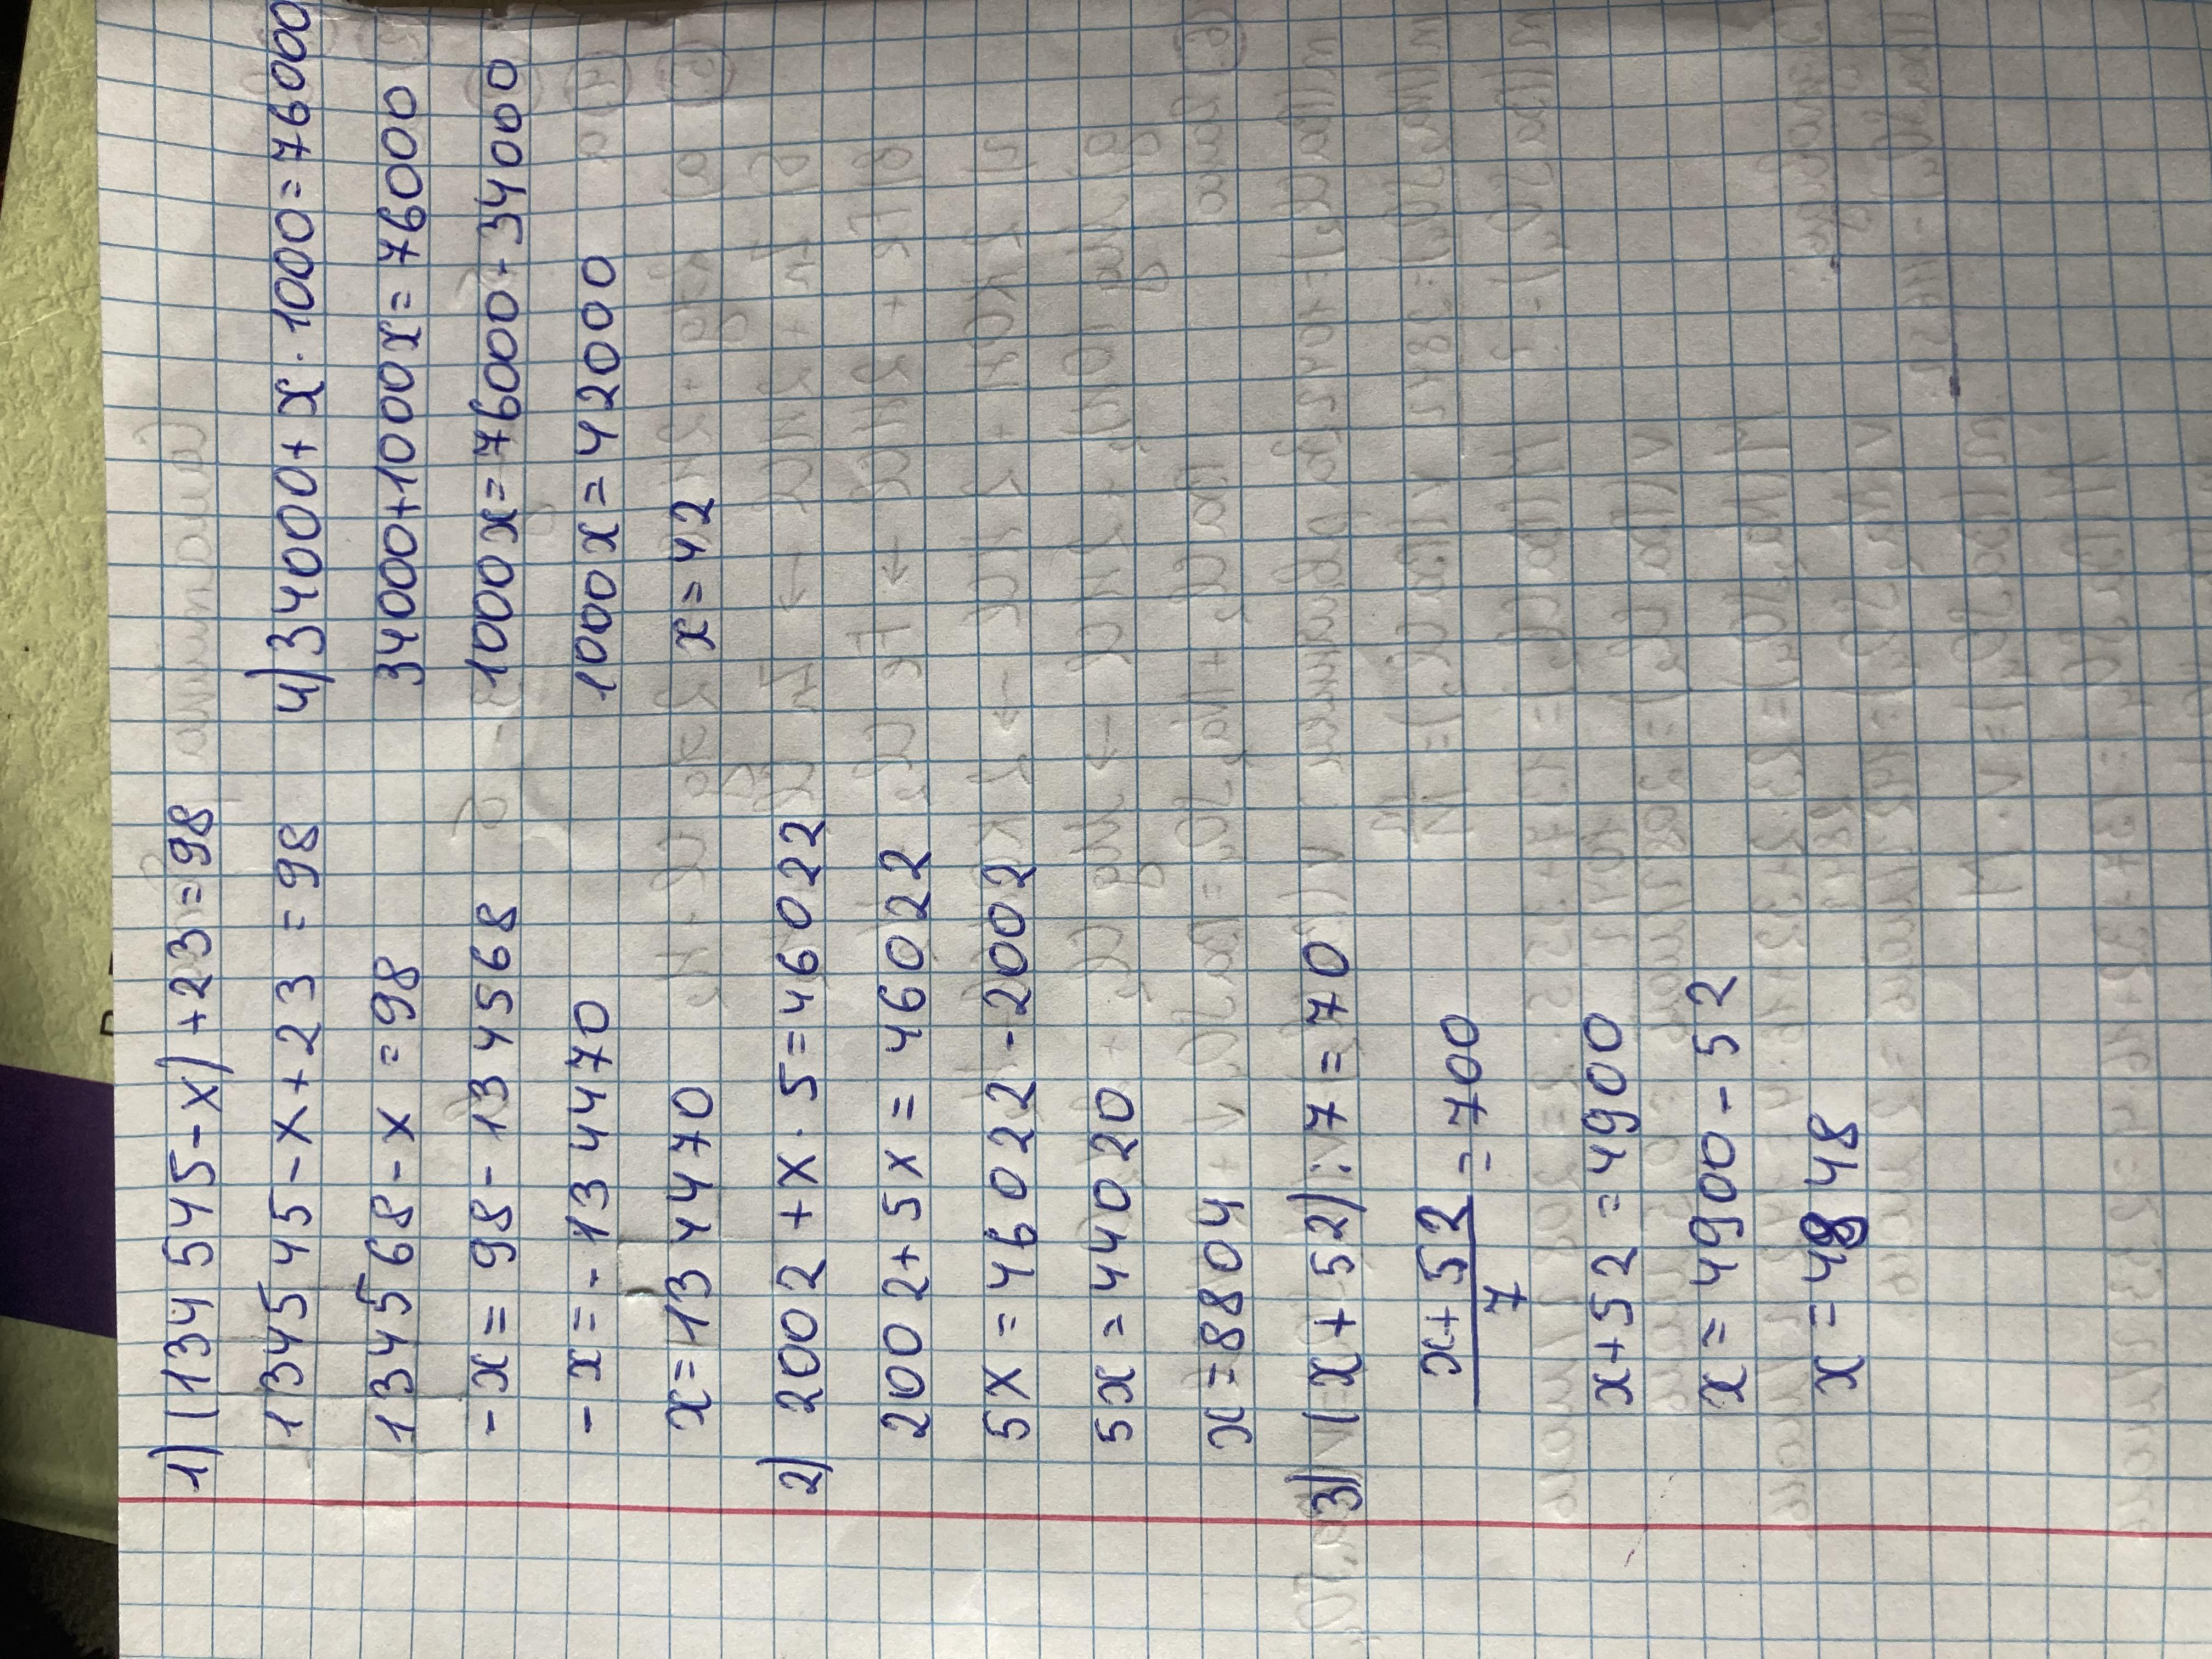 1) (134 545-x) +23=98
134545-x+23 =98
134568-x =98
-x=98-134568
-x=-134470
x=134470
2) 2002+x·5=46022
2002+5x=46022
5x=46022-2002
5x=44020
x=8804
3) (x+52):7=70
x+52
7
=700
x+52=4900
x=4900-52
x=4848
4) 34000+x·1000=76000
34000+1000x=76000
1000x=76000-34000
1000x=42000
x=42